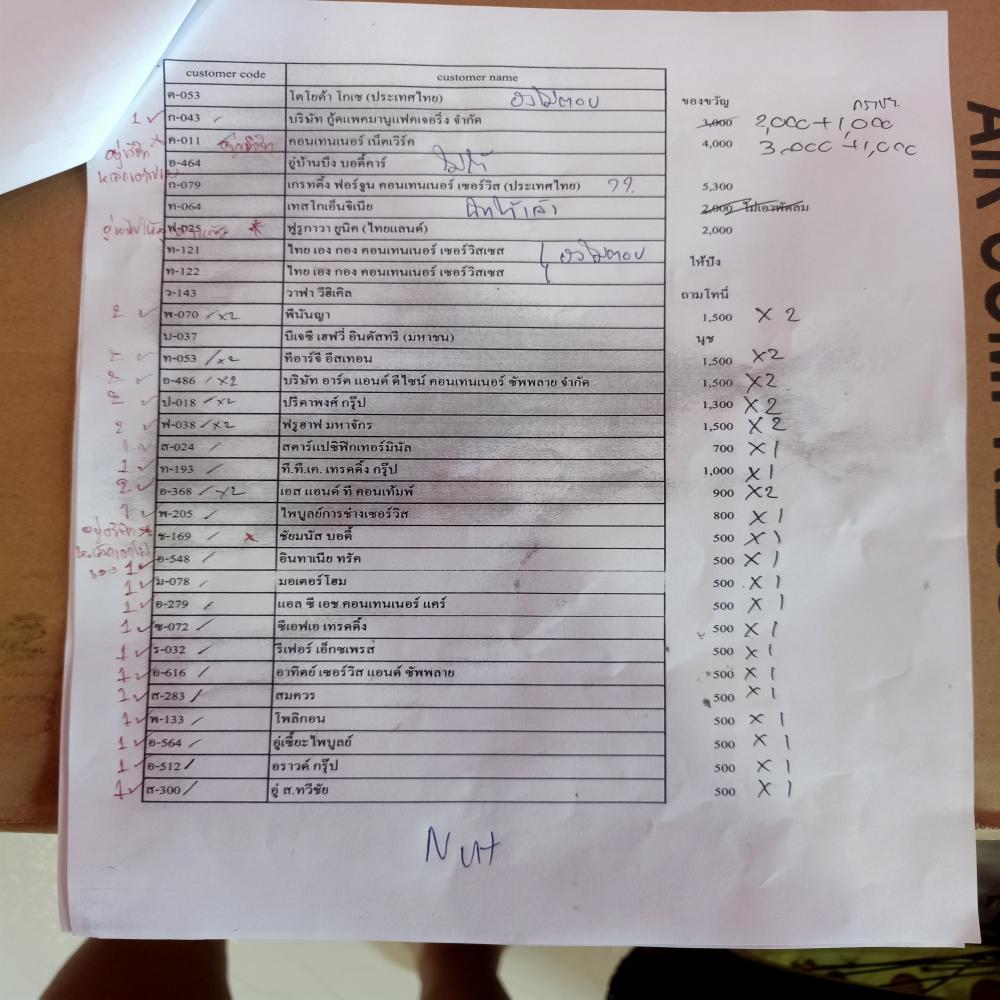 customer code customer name
ต-053 โตโยด้า โกเซ (ประเทศไทย) ยังไม่ตอบ ของขวัญ ตราชั่
1 ✓ ก-043 / บริษัท กู้ดแพคมานูแฟคเจอริ่ง จำกัด 3,000 2,000 + 1,000
ค-011 อยู่บริษัท คอนเทนเนอร์ เน็ตเวิร์ค 4,000 3,000 + 1,000
อยู่บริษัท *
อ-464 อู่บ้านบึง บอดี้คาร์ ไม่ให้
ก-079 เกรทติ้ง ฟอร์จูน คอนเทนเนอร์ เซอร์วิส (ประเทศไทย) ??. 5,300
ท-064 เทสโกเอ็นจิเนีย ให้แล้ว 2,000 ไม่เอาพัดลม
ฟ-025 * ฟูรูกาวา ยูนิค (ไทยแลนด์) 2,000
ท-121 ไทย เอง กอง คอนเทนเนอร์ เซอร์วิสเซส ยังไม่ตอบ ให้ปิง
ท-122 ไทย เอง กอง คอนเทนเนอร์ เซอร์วิสเซส
ว-143 วาฟา วีฮิเคิล ถามโทนี่
2 ✓ พ-070 / x2 พีนันญา 1,500 X 2
บ-037 บีเจซี เฮฟวี่ อินดัสทรี (มหาชน) นุช
2 ✓ ท-053 / x2 ทีอาร์จี อีสเทอน 1,500 X2
2 ✓ อ-486 / x2 บริษัท อาร์ค แอนด์ ดีไซน์ คอนเทนเนอร์ ซัพพลาย จำกัด 1,500 X2
2 ✓ ป-018 / x2 ปรีดาพงศ์ กรุ๊ป 1,300 X2
2 ✓ ฟ-038 / x2 ฟรูฮาฟ มหาจักร 1,500 X2
1 ✓ ส-024 / สตาร์แปซิฟิกเทอร์มินัล 700 X1
1 ✓ ท-193 / ที.ที.เค. เทรดดิ้ง กรุ๊ป 1,000 X1
2 ✓ อ-368 / x2 เอส แอนด์ ที คอนเท้มพ์ 900 X2
1 ✓ พ-205 / ไพบูลย์การช่างเซอร์วิส 800 X 1
อยู่บริษัท * ช-169 / * ชัยมนัส บอดี้ 500 X 1
1 ✓ อ-548 / อินทาเนีย ทรัค 500 X 1
1 ✓ ม-078 / มอเตอร์โฮม 500 X 1
1 ✓ อ-279 / แอล ซี เอช คอนเทนเนอร์ แคร์ 500 X 1
1 ✓ ซ-072 / ซีเอฟเอ เทรดดิ้ง 500 X 1
1 ✓ ร-032 / รีเฟอร์ เอ็กซเพรส 500 X 1
1 ✓ อ-616 / อาทิตย์ เซอร์วิส แอนด์ ซัพพลาย 500 X 1
1 ✓ ส-283 / สมควร 500 X 1
1 ✓ พ-133 / โพลิกอน 500 X 1
1 ✓ อ-564 / อู่เซี้ยะไพบูลย์ 500 X 1
1 ✓ อ-512 / อราวด์ กรุ๊ป 500 X 1
1 ✓ ส-300 / อู่ ส.ทวีชัย 500 X 1
Nut